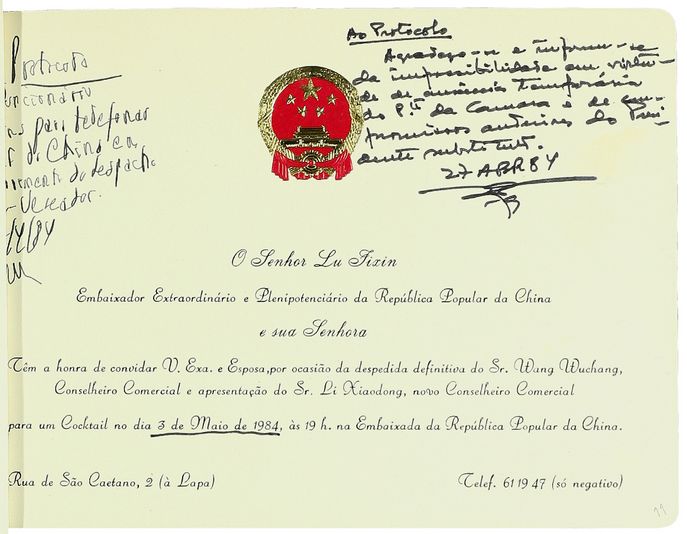 Protocolo
para telefonar
da China
do despacho
Vereador.
Ao Protocolo
Agradeço-se e informe-se
da impossibilidade em virtu-
de de ausência temporária
do P.te da Camara e de com-
promissos anteriores do Presi-
dente substituto.
27 ABR 84
O Senhor Lu Jixin
Embaixador Extraordinário e Plenipotenciário da República Popular da China
e sua Senhora
Têm a honra de convidar V. Exa. e Esposa,por ocasião da despedida definitiva do Sr. Wang Wuchang,
Conselheiro Comercial e apresentação do Sr. Li Xiaodong, novo Conselheiro Comercial
para um Cocktail no dia 3 de Maio de 1984, às 19 h. na Embaixada da República Popular da China.
Rua de São Caetano, 2 (à Lapa)
Telef. 61 19 47 (só negativo)